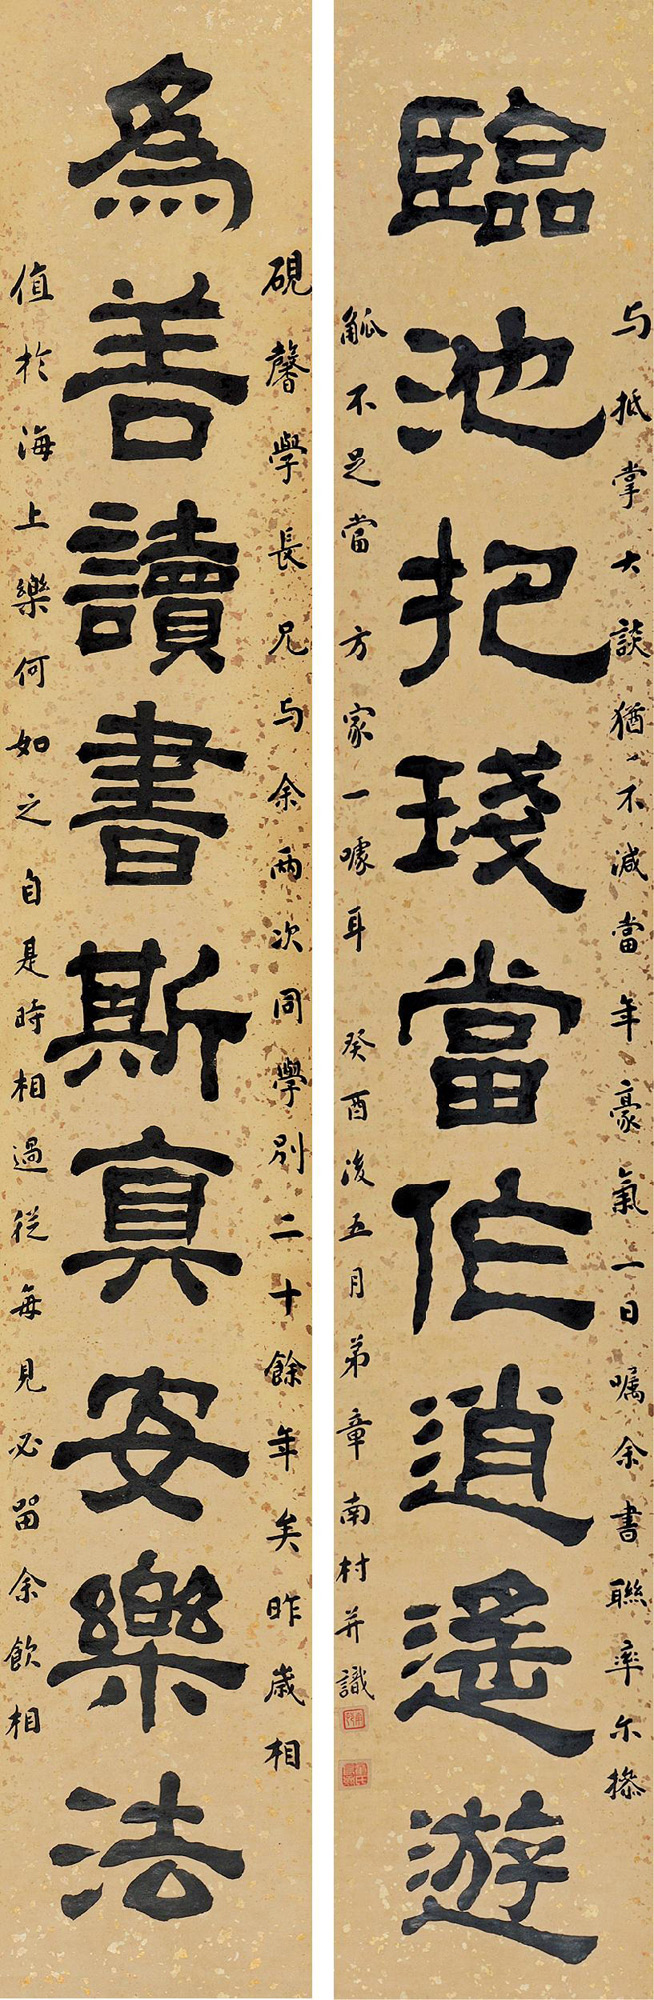 為善讀書斯真安樂法
硯馨學長兄与余兩次同學別二十餘年矣昨歲相
值於海上樂何如之自是時相過從每見必留余飲相
臨池把琖當作逍遙遊
与抵掌大談猶不減當年豪氣一日囑余書聯率尔操
觚不足當方家一噱耳 癸酉後五月弟章南村并識